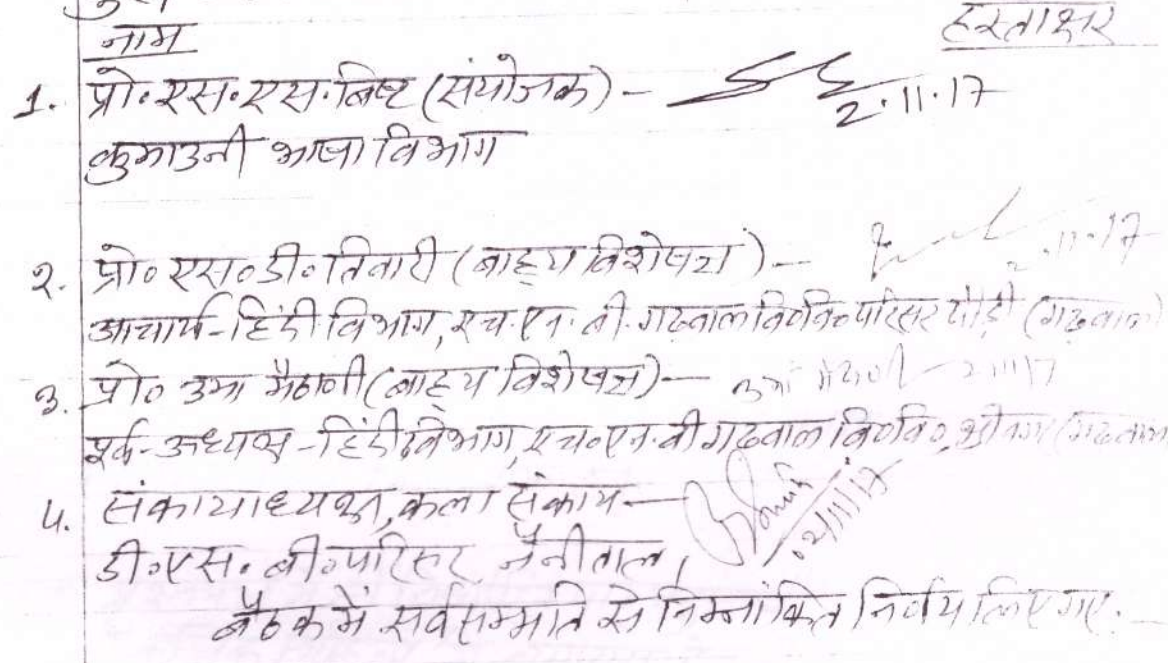 नाम हस्ताक्षर
1. प्रो॰ एस॰ एस॰ बिष्ट (संयोजक) - 2.11.17
कुमाउनी भाषा विभाग
2. प्रो॰ एस॰ डी॰ तिवारी (बाह्य विशेषज्ञ) - 2.11.17
आचार्य-हिंदी विभाग, एच॰ एन॰ बी॰ गढ़वाल वि॰ वि॰ परिसर पौड़ी (गढ़वाल)
3. प्रो॰ उमा मैठाणी (बाह्य विशेषज्ञ) - उमा मैठाणी - 2.11.17
पूर्व-अध्यक्ष - हिंदी विभाग, एच॰ एन॰ बी गढ़वाल वि॰ वि॰ श्रीनगर (गढ़वाल
4. संकायाध्यक्ष, कला संकाय - 02/11/17
डी॰ एस॰ बी॰ परिसर नैनीताल,
बैठक में सर्वसम्मति से निम्नांकित निर्णय लिए गए.